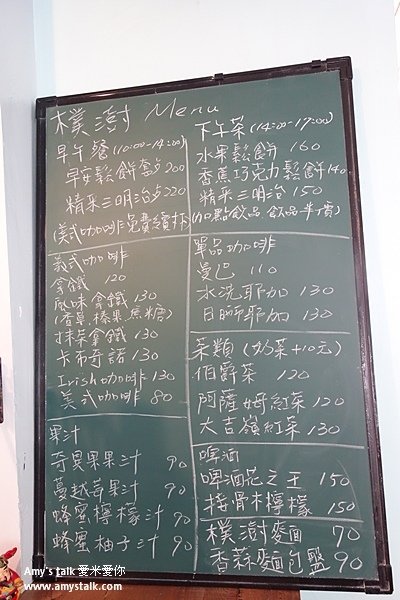 樸澍 Menu
早午餐(10:00-14:00)
早安鬆餅套 200
精采三明治 220
(美式咖啡免費續杯)
下午茶(14:00-17:00)
水果鬆餅 160
香蕉巧克力鬆餅 140
精采三明治 150
(加點飲品,飲品半價)
義式咖啡
拿鐵 120
風味拿鐵 130
(香草.榛果.焦糖)
抹茶拿鐵 130
卡布奇諾 130
Irish咖啡 130
美式咖啡 80
單品咖啡
曼巴 110
水洗耶加 130
日曬耶加 130
茶類(奶茶+10元)
伯爵茶 120
阿薩姆紅茶 120
大吉嶺紅茶 130
果汁
奇異果果汁 90
蔓越莓果汁 90
蜂蜜檸檬汁 90
蜂蜜柚子汁 90
啤酒
啤酒花之王 150
接骨木檸檬 150
樸澍麵 70
香蒜麵包盤 90
Amy's talk 愛米愛你
www.amystalk.com